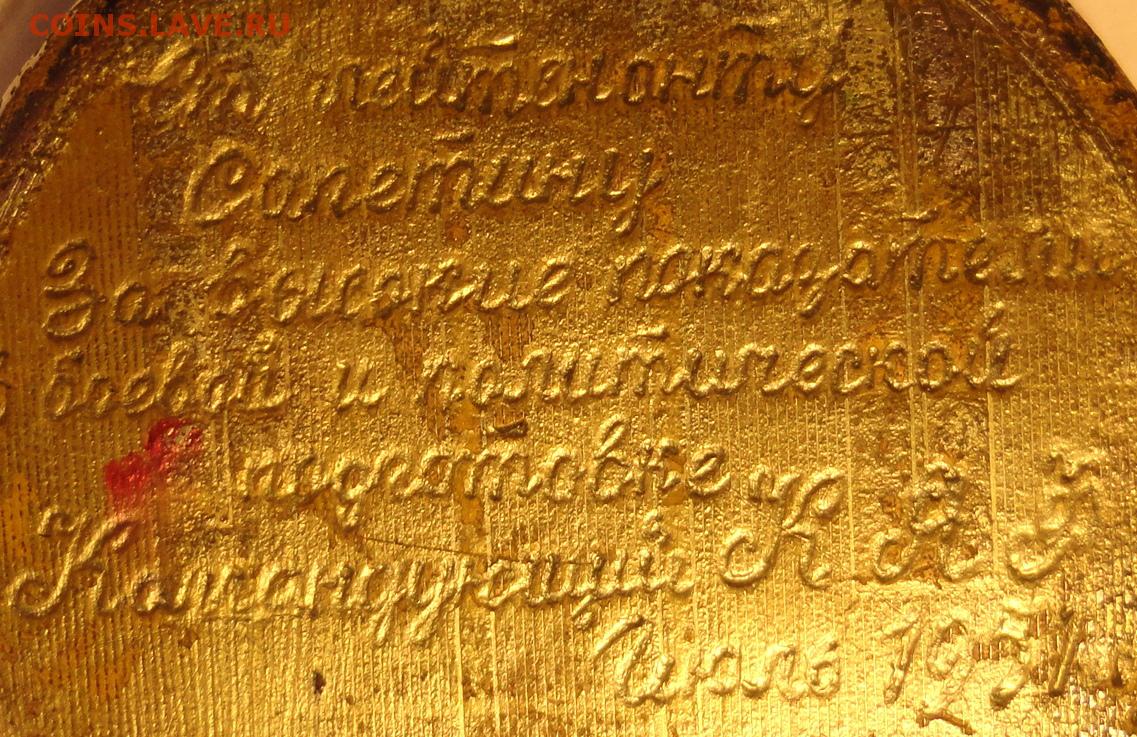 COINS.LAVE.RU
Ст лейтенанту
Салетину
За высокие показатели
в боевой и политической
подготовке
Командующий
Июль 1951